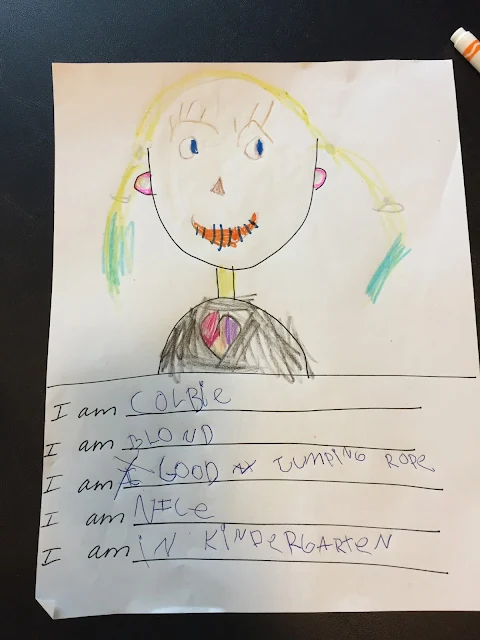 I am COLBiE
I am BLOND
I am GOOD At JUMPING ROPE
I am NICE
I am iN KINDERGARTEN